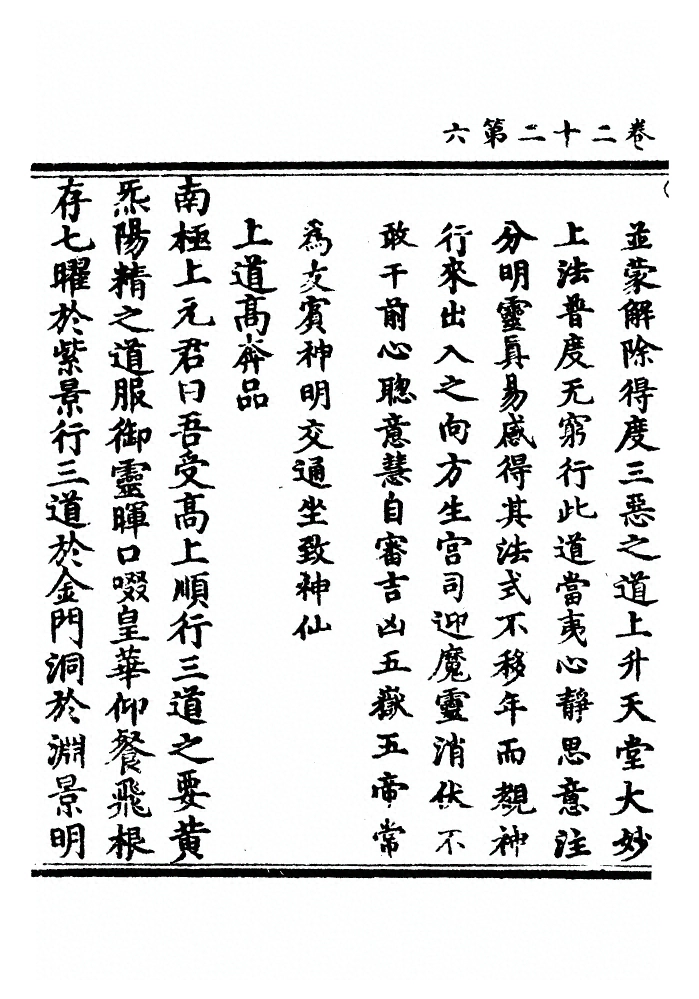 卷二十二第六
並蒙解除得度三惡之道上升天堂大妙
上法普度无窮行此道當夷心靜思意注
分明靈真易感得其法式不移年而覩神
行來出入之向方生宮司迎魔靈消伏不
敢干前心聰意慧自審吉凶五嶽五帝常
為友賓神明交通坐致神仙
上道高奔品
南極上元君曰吾受高上順行三道之要黃
炁陽精之道服御靈暉口啜皇華仰餐飛根
存七曜於紫景行三道於金門洞於淵景明